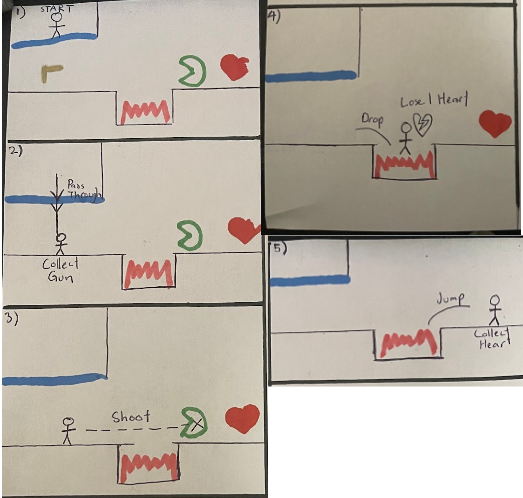 1)
START
2)
Pass
Through
Collect
Gun
3)
Shoot
4)
Lose 1 Heart
Drop
5)
Jump
Collect
Heart